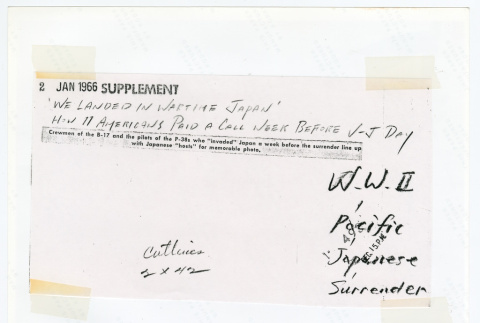 2 JAN 1966 SUPPLEMENT
'WE LANDED IN WARTIME JAPAN'
HOW 11 AMERICANS PAID A CALL WEEK BEFORE V-J DAY
Crewmen of the B-17 and the pilots of the P-38s who "invaded" Japan a week before the surrender line up
with Japanese "hosts" for memorable photo.
W.W. II
Pacific
Japanese
Surrender
Cutlines
2 x 42